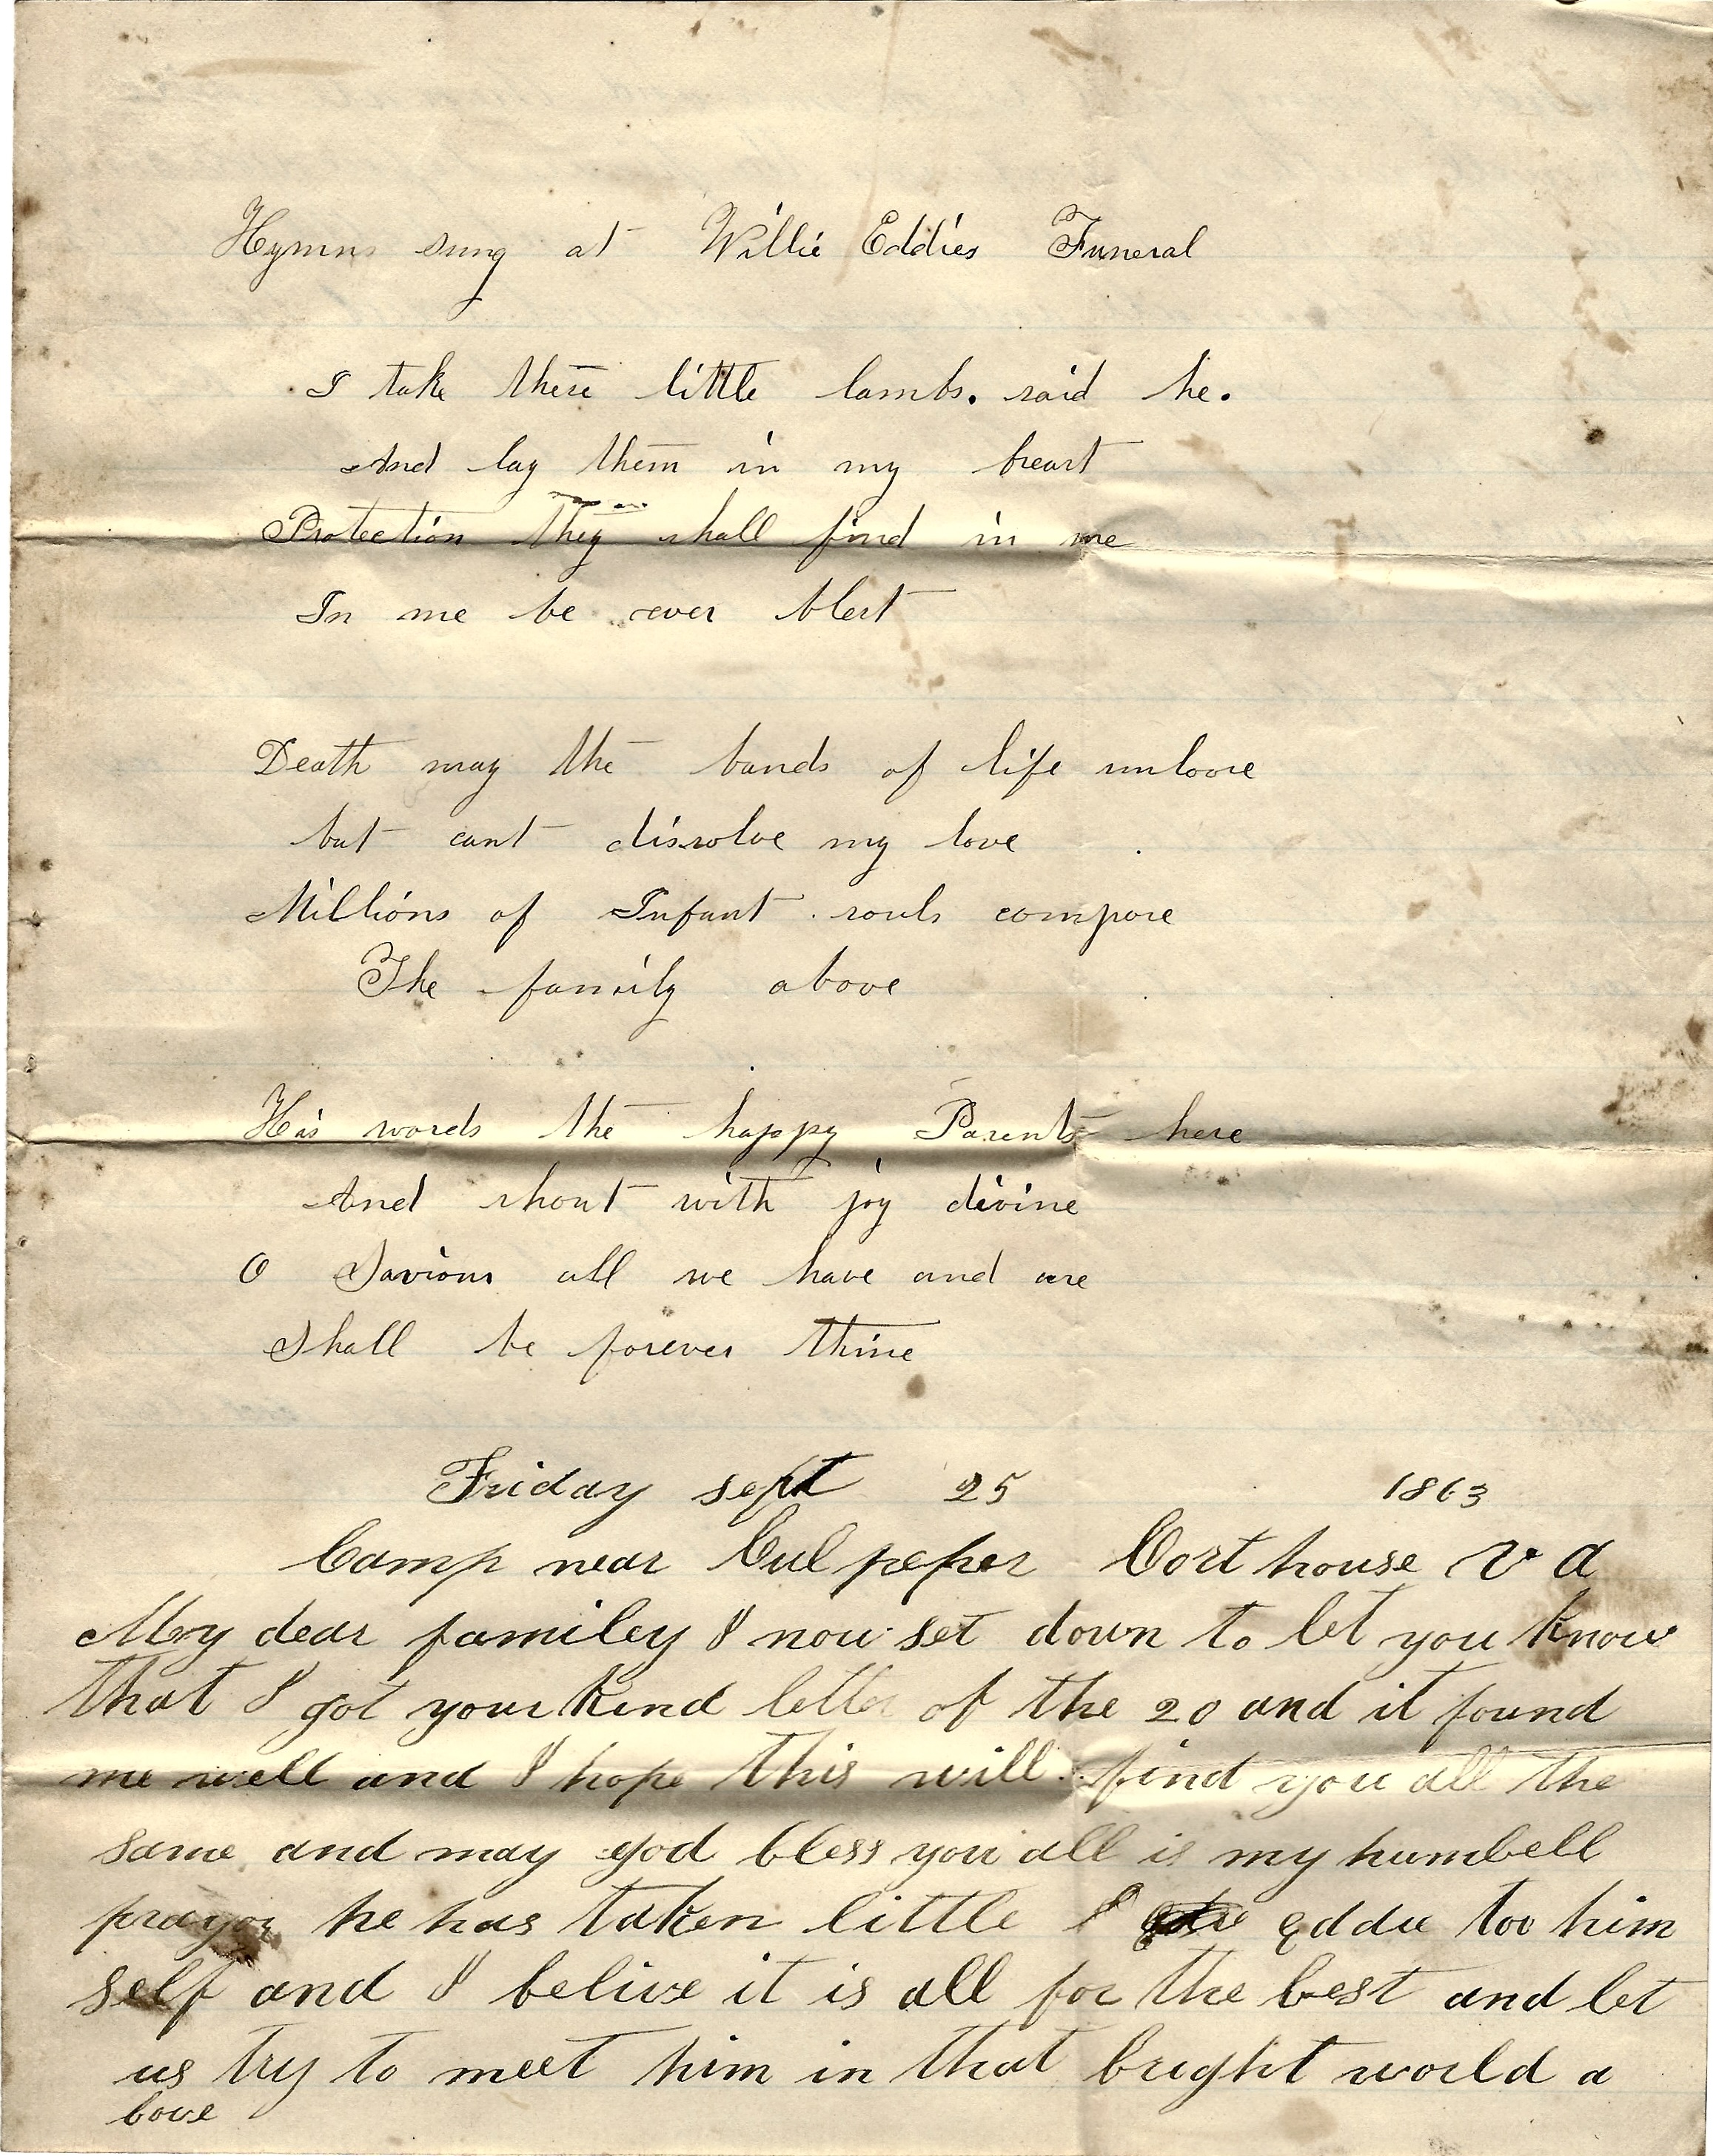 Hymns sung at Willie Eddies Funeral
I take these little lambs. said he.
And lay them in my breast
Protection they shall find in me
In me be ever blest
Death may the bands of life unloose
but cant dissolve my love
Millions of Infant souls compose
The family above
His words the happy Parents here
And shout with joy divine
O Saviour all we have and are
Shall be forever thine
Friday sept 25 1863
Camp near Culpeper Cort house va
My dear familey I now set down to let you know
that I got your kind letter of the 20 and it found
me well and I hope this will find you all the
same and may god bless you all is my humbell
prayor he has taken little I eddie too him
self and I belive it is all for the best and let
us try to meet him in that bright world a
bove